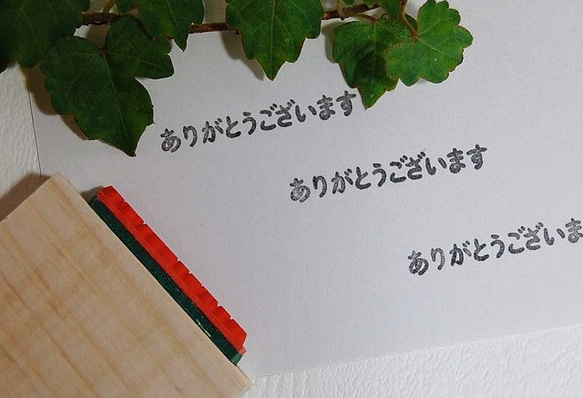 ありがとうございます
ありがとうございます
ありがとうございま